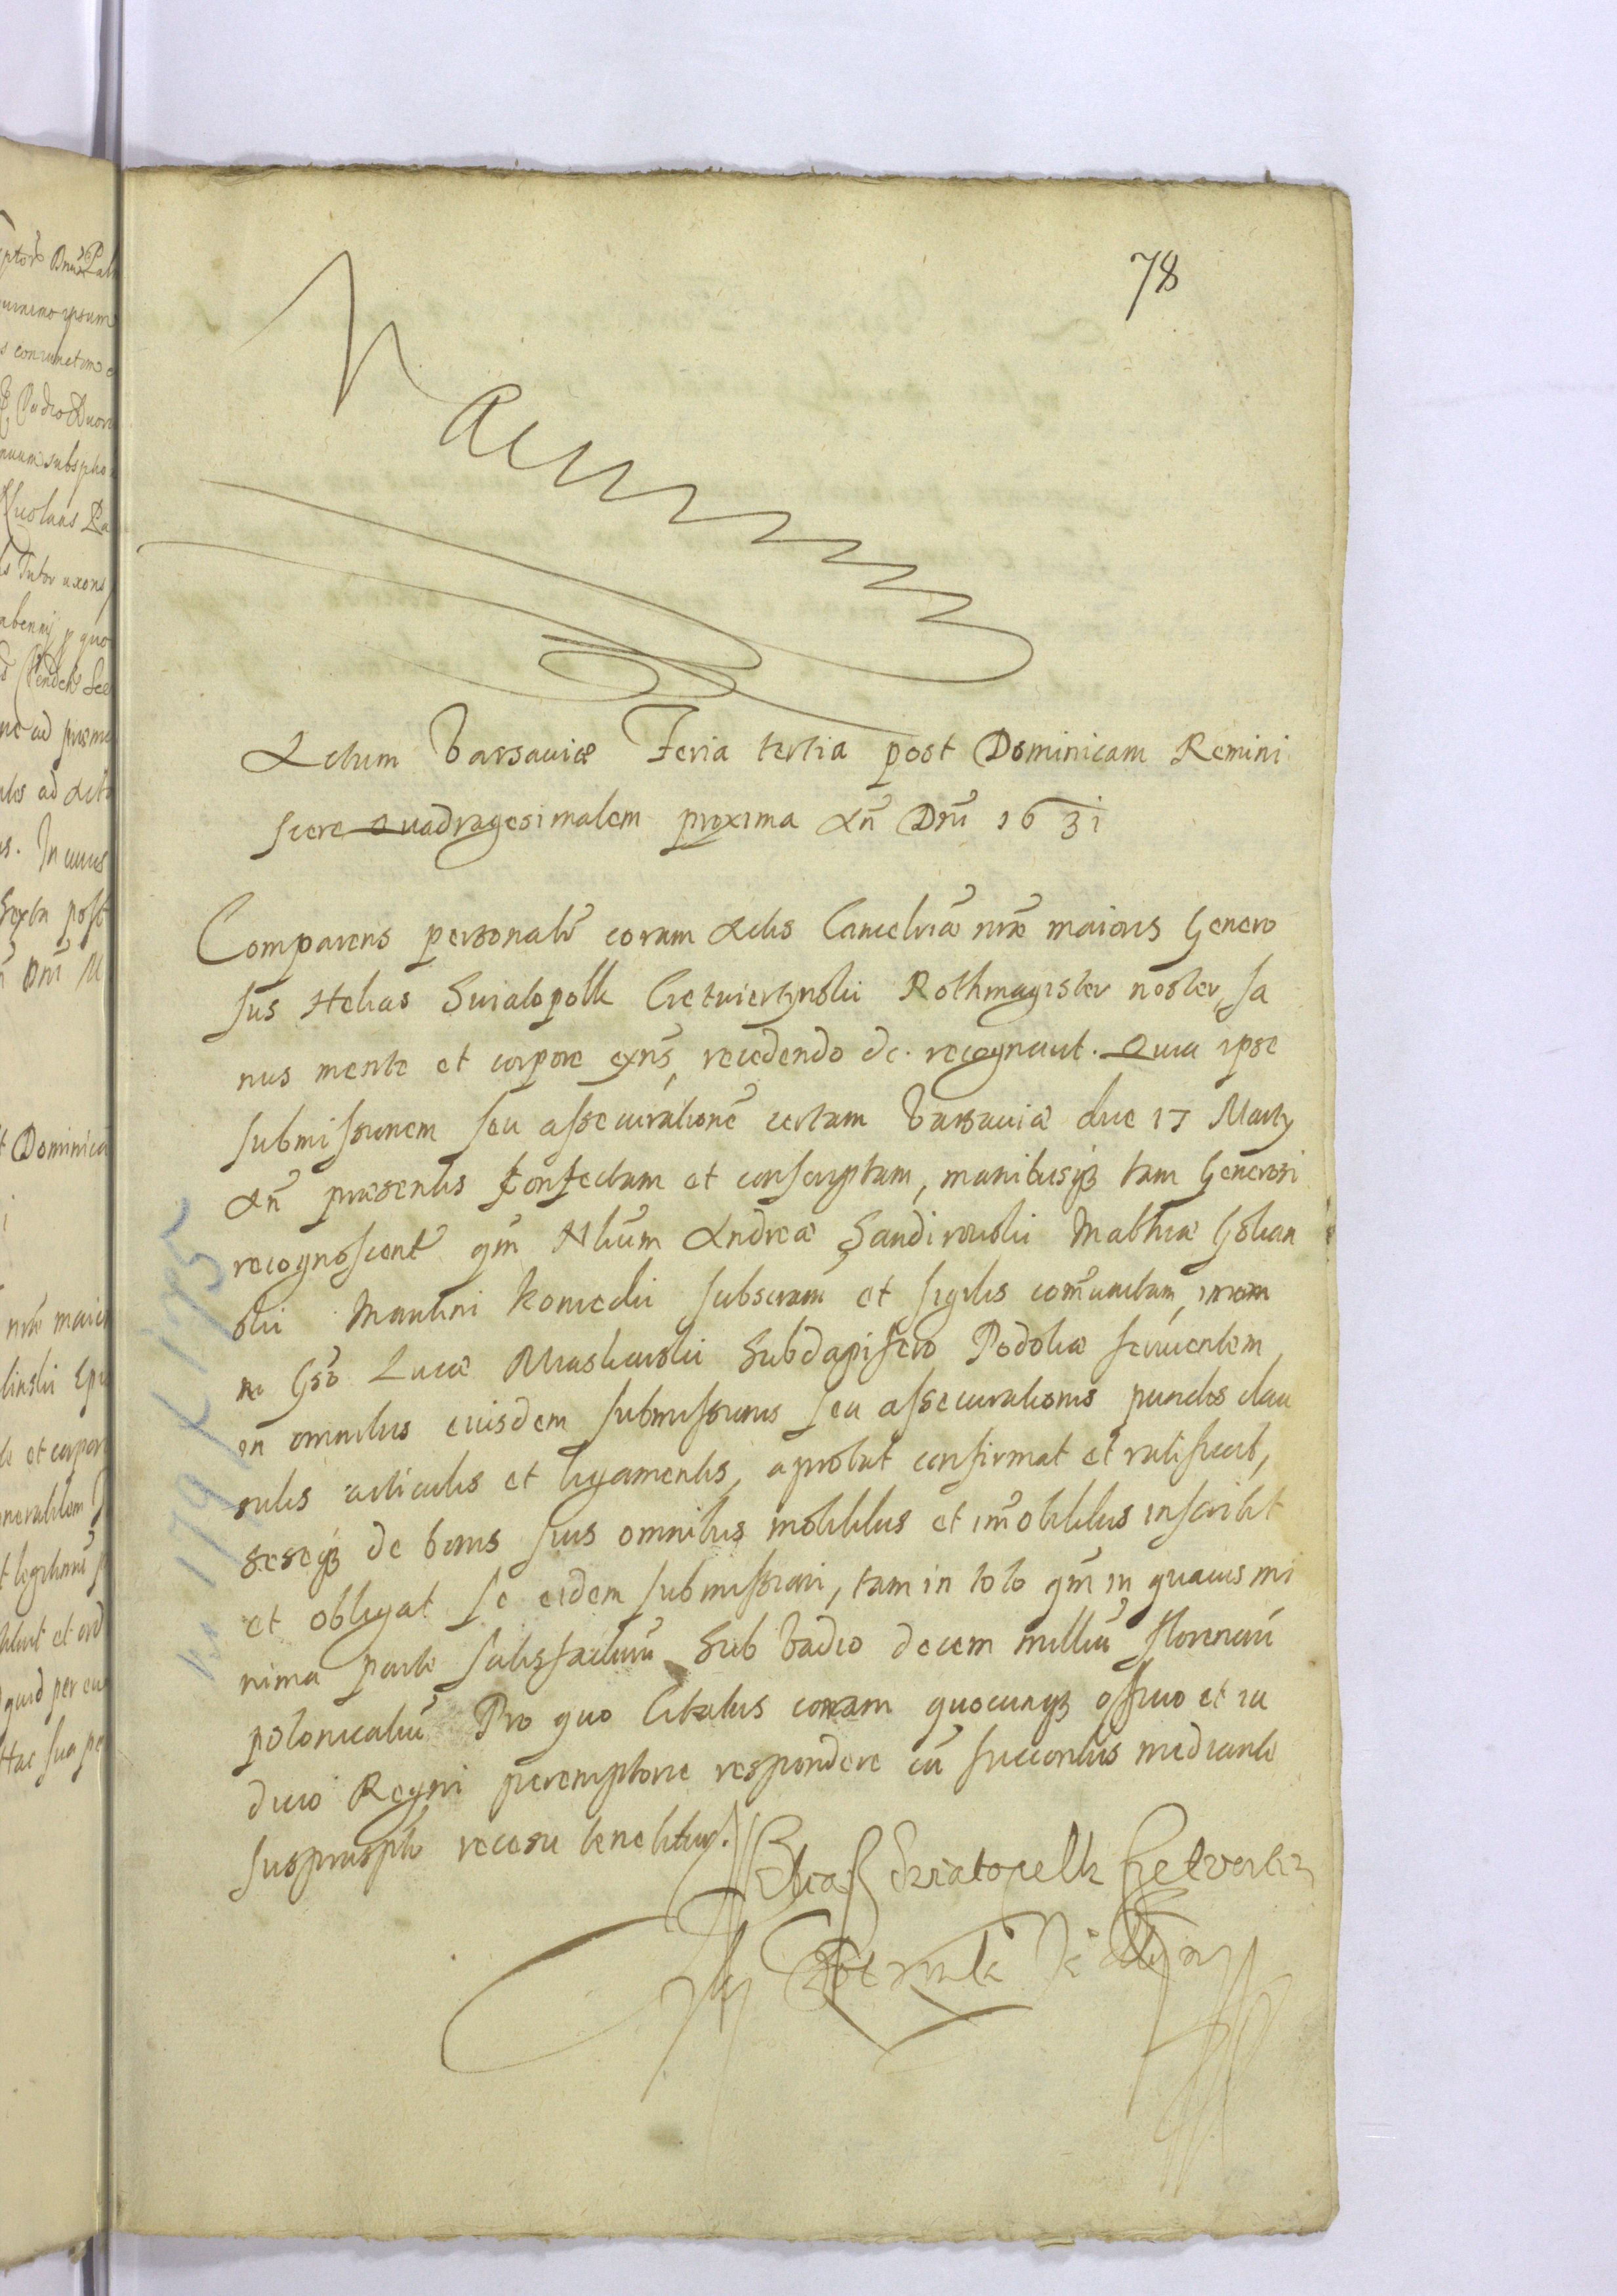 78
Actum Varsaviæ Feria tertia post Dominicam Remini
scere Quadragesimalem proxima Añ Dñi 1631
Comparens personalr̃ coram Actis Cancelriæ nræ maioris Genero
sus Helias Swiatopolk Czetwiertynskii Rothmagister noster, sa
nus mente et corpore exñs, recedendo &c. recognovit. Quia ipse
submissionem seu assecurationẽ certam Varsaviæ die 17 Martij
Añ præsentis confectam et conscriptam, manibusq́ʒ tam Generosi
recognoscent̃ qm̃ Andreæ Mathiæ
skii Martini subscriptam et sigilis com̃unitam,
Gso Lucæ Miaskowskii Subdapifero Podoliæ servientem
in omnibus eiusdem submissionis seu assecurationis punctis clau
sulis articulis et ligamentis, aprobat confirmat et ratificat,
seseq́ʒ de bonis suis omnibus mobilibus et im̃obilibus inscribit
et obligat se eidem submissioni, tam in toto qm̃ in quavis mi
nima parte satisfacturũ Sub vadio decem milliũ florenorũ
polonicaliũ Pro quo Citatus coram quocunqʒ officio et iu
dicio Regni peremptorie respondere cũ successoribus mediante
suspraspto recessu tenebitur.
Eliasz Swiatopelk Czetwertin